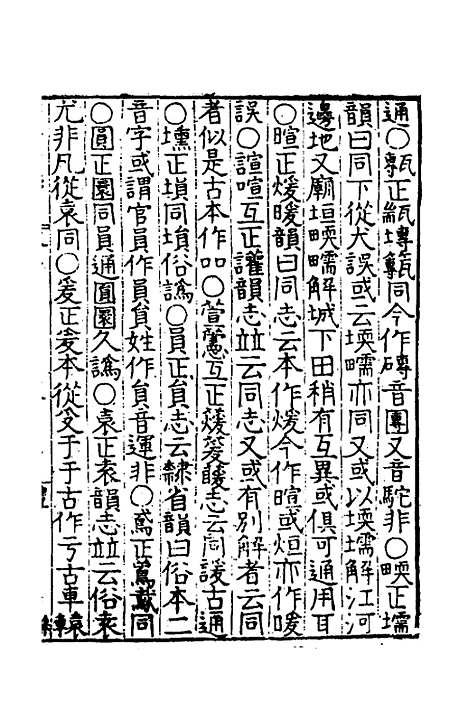 通〇甎正䏙塼甎同今作磚音團又音駝非〇㬉正壖
韻曰同下從犬誤或云堧㬉亦同又或以堧壖解江河
邊地又廟垣㬉壖解城下田稍有互異或俱可通用耳
〇暄正煖暖韻曰同志云本作煖今作暄或烜亦作㬉
誤〇諠喧互正讙韻志並云同志又或有別解者云同
者似是古本作吅〇萱藼互正萲蕿志云同諼古通
〇壎正塤同埙俗譌〇員正貟志云隸省韻曰俗本二
音字或謂官員作員貟姓作貟音運非〇鳶正䳒同
〇圓正園同員通圎園久譌〇袁正𡊮韻志並云俗𡊮
尤非凡從袁同〇爰正爰本從爫于于古作亐古車轅